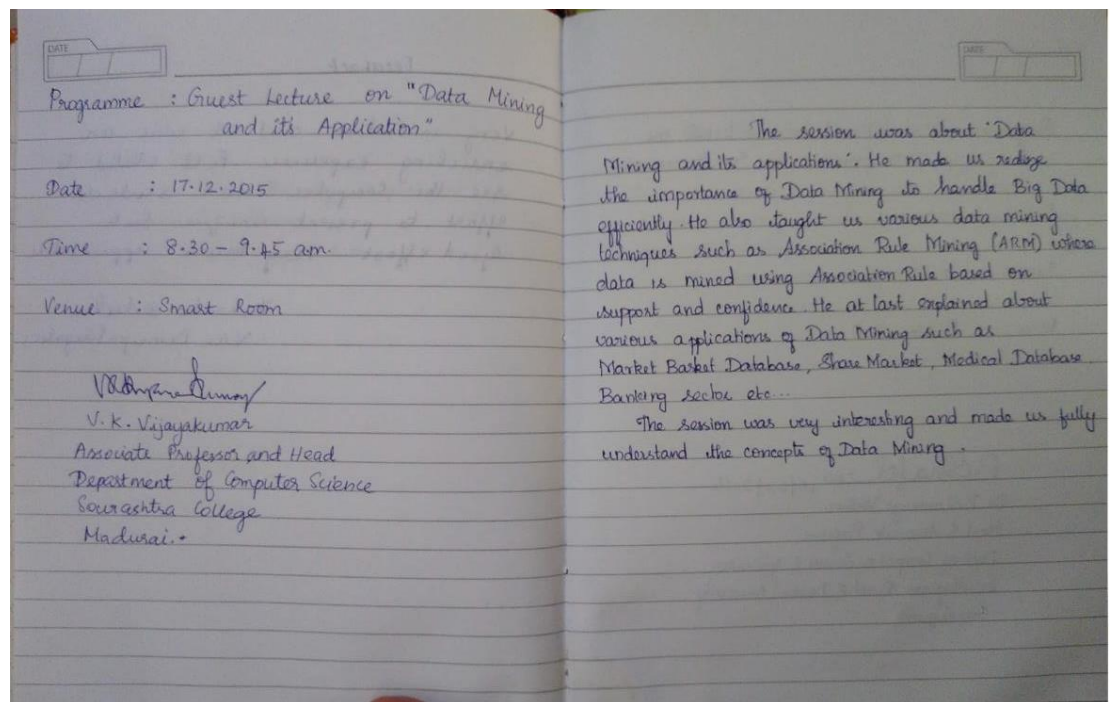 DATE
Programme : Guest Lecture on "Data Mining
and its Application"
Date : 17.12.2015
Time : 8.30 - 9.45 am.
Venue : Smart Room
V. K. Vijayakumar
Associate Professor and Head
Department of Computer Science
Sourashtra College
Madurai.
DATE
The session was about 'Data
Mining and its applications'. He made us realize
the importance of Data Mining to handle Big Data
efficiently. He also taught us various data mining
techniques such as Association Rule Mining (ARM) where
data is mined using Association Rule based on
support and confidence. He at last explained about
various applications of Data Mining such as
Market Basket Database, Share Market, Medical Database
Banking sector etc...
The session was very interesting and made us fully
understand the concepts of Data Mining.